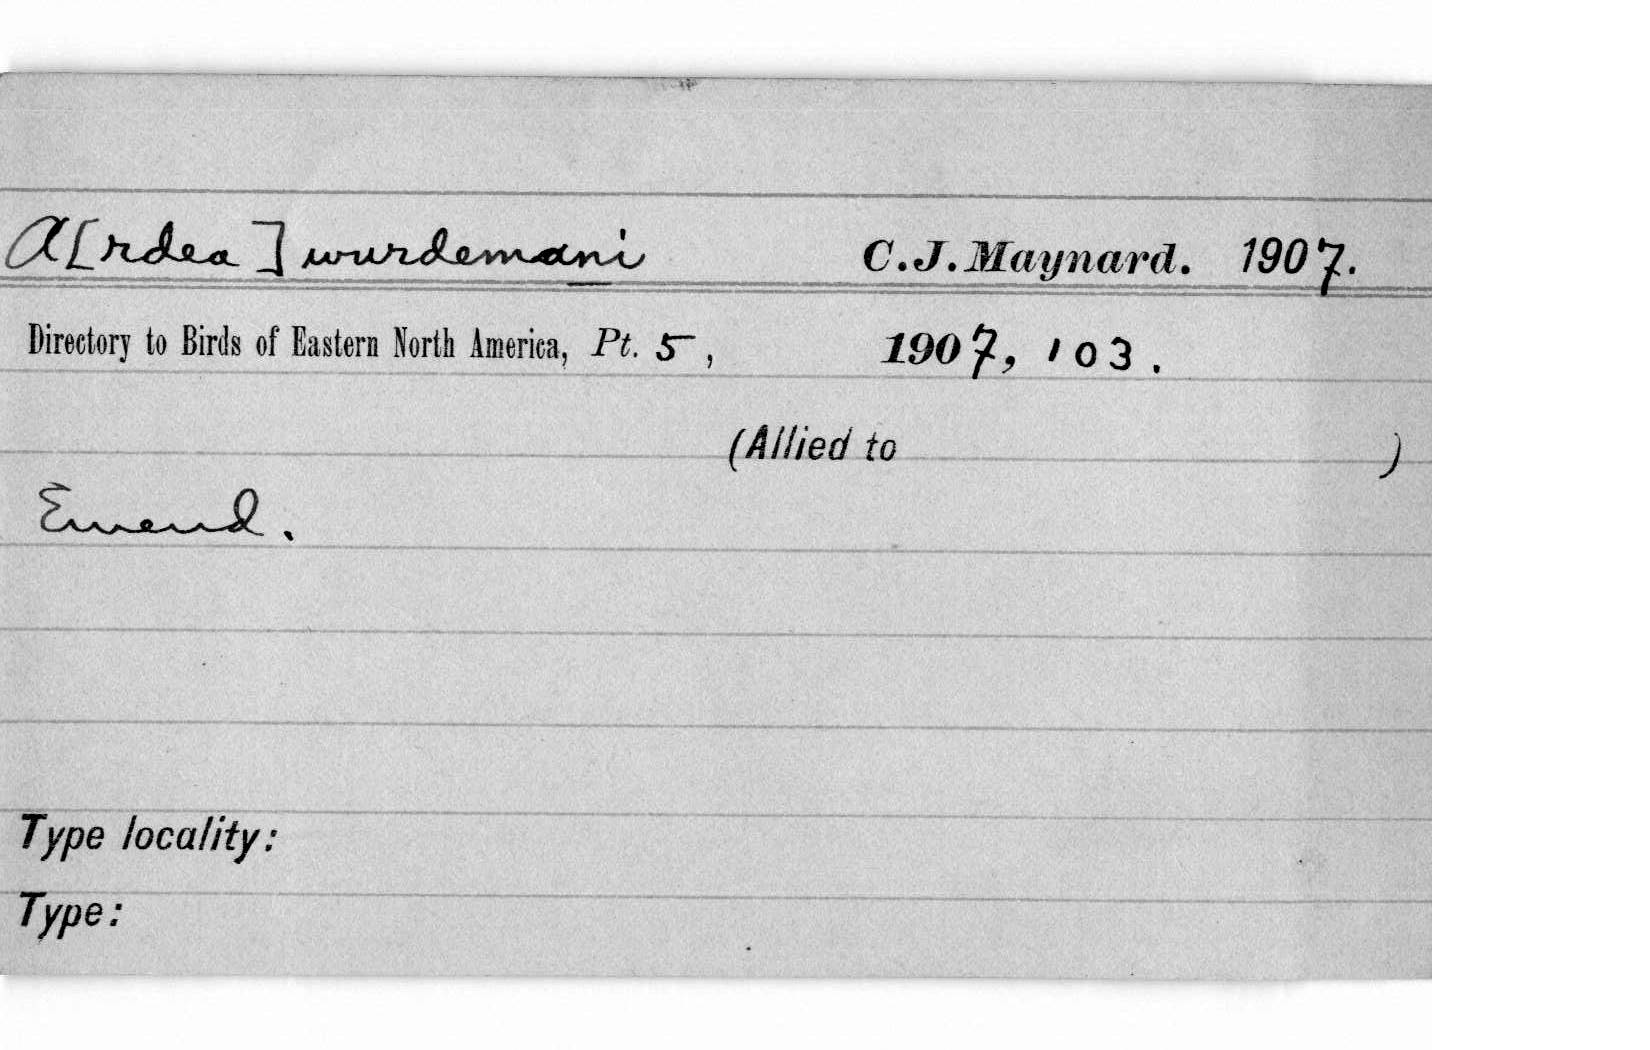 A[rdea] wurdemani C.J. Maynard. 1907.
Directory to Birds of Eastern North America, Pt. 5, 1907, 103.
(Allied to )
Emend.
Type locality:
Type: